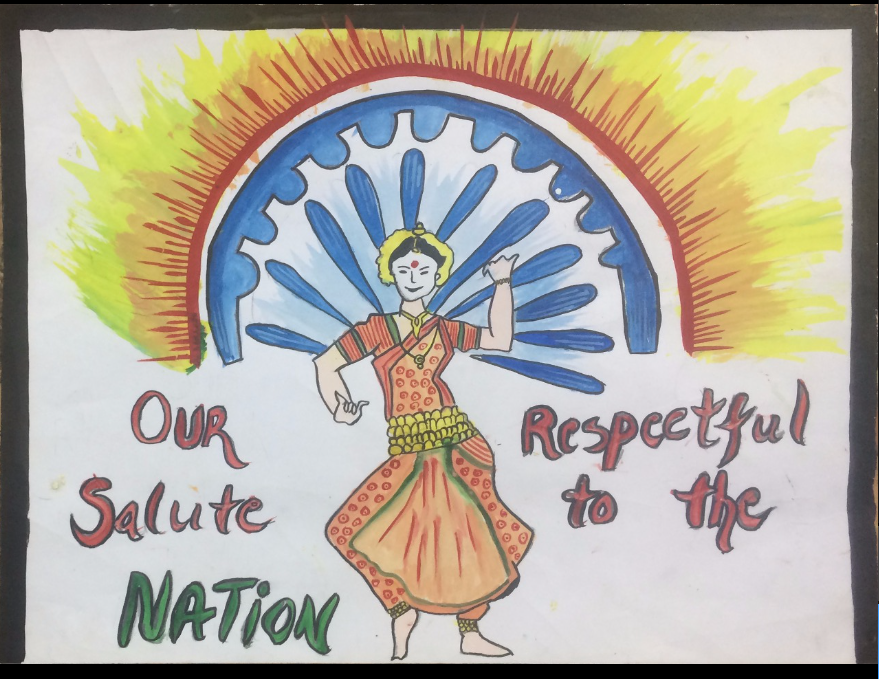 OUR Respectful
Salute to the
NATiON